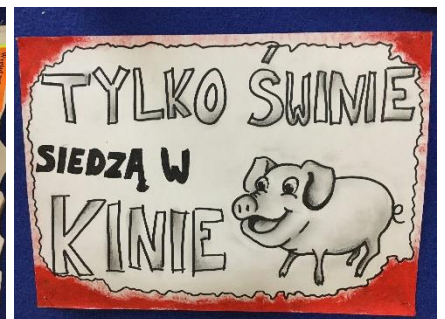 TYLKO ŚWINIE
SIEDZĄ W
KINIE